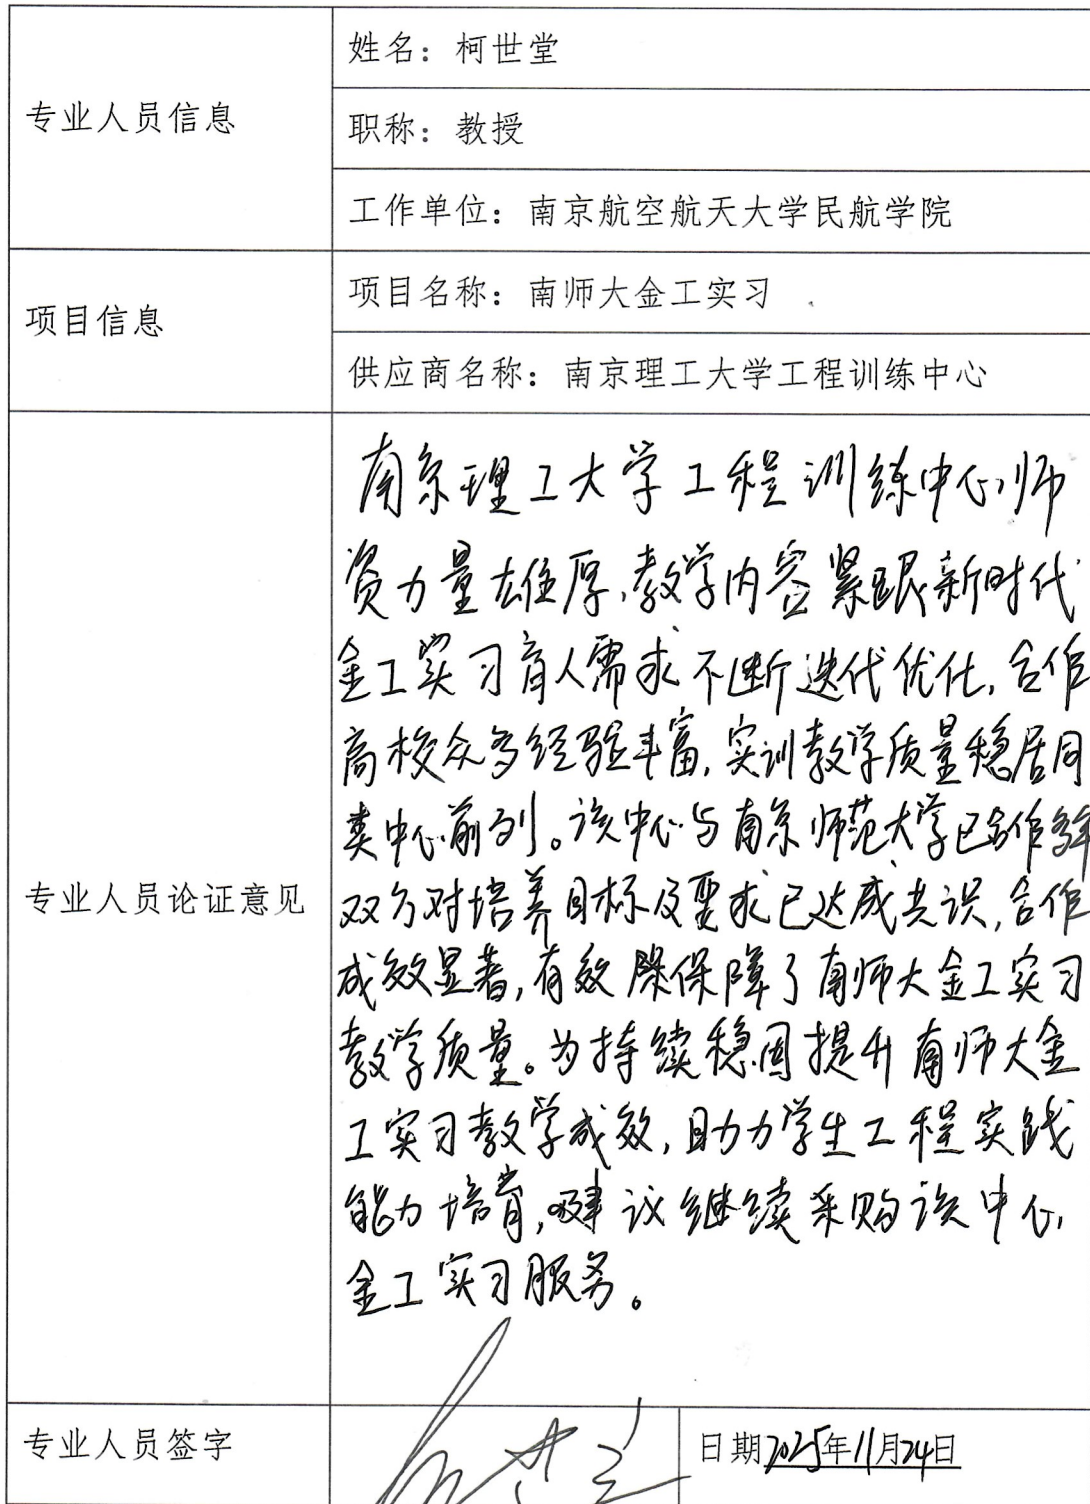 专业人员信息
姓名：柯世堂
职称：教授
工作单位：南京航空航天大学民航学院
项目信息
项目名称：南师大金工实习
供应商名称：南京理工大学工程训练中心
专业人员论证意见
南京理工大学工程训练中心，师
资力量雄厚，教学内容紧跟新时代
金工实习育人需求不断迭代优化，合作
高校众多经验丰富，实训教学质量稳居同
类中心前列。该中心与南京师范大学已合作多年
双方对培养目标及要求已达成共识，合作
成效显著，有效保障了南师大金工实习
教学质量。为持续稳固提升南师大金
工实习教学成效，助力学生工程实践
能力培育，建议继续采购该中心
金工实习服务。
专业人员签字
柯世堂
日期2025年11月24日